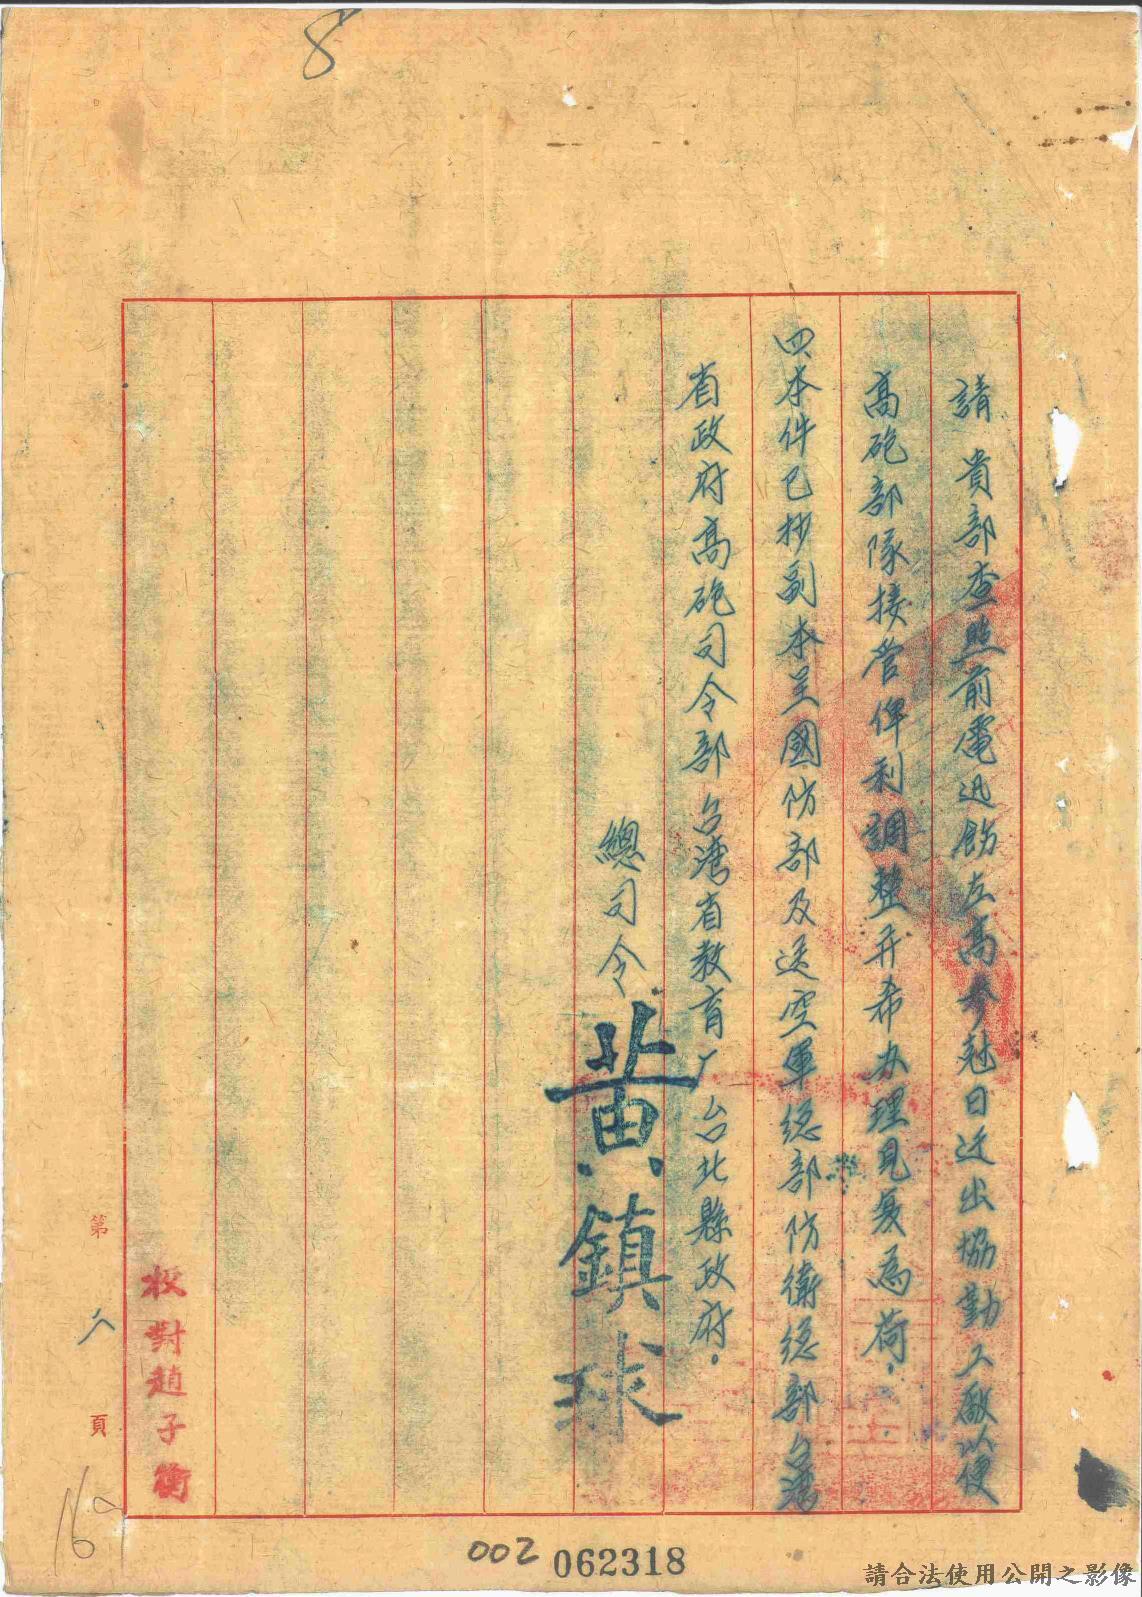 8
請 貴部查照前電迅飭左高參尅日迁出協勤工廠以便
高砲部隊接管俾利調整并希办理見复為荷．
四本件已抄副本呈國防部及送空軍總部防衛總部台灣
省政府高砲司令部台灣省教育厂台北縣政府．
總司令黃鎮球
校對趙子衡
第 八 頁
169
002 062318
請合法使用公開之影像